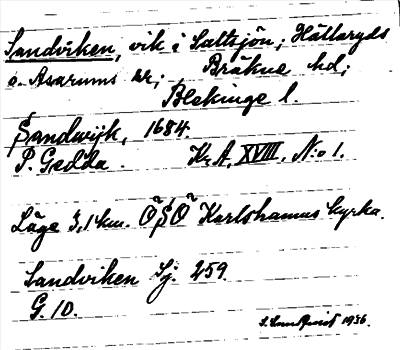 Sandviken, vik i Saltsjön; Hällaryds
o. Asarums sk; Bräkne hd;
Blekinge l.
Sandwijk, 1684.
P. Gedda. Kr. A. XVIII. N:o 1.
Läge 3,1 km. ÖSÖ Karlshamns kyrka.
Sandviken Sj. 259.
G. 10.
S. Lundqvist 1936.